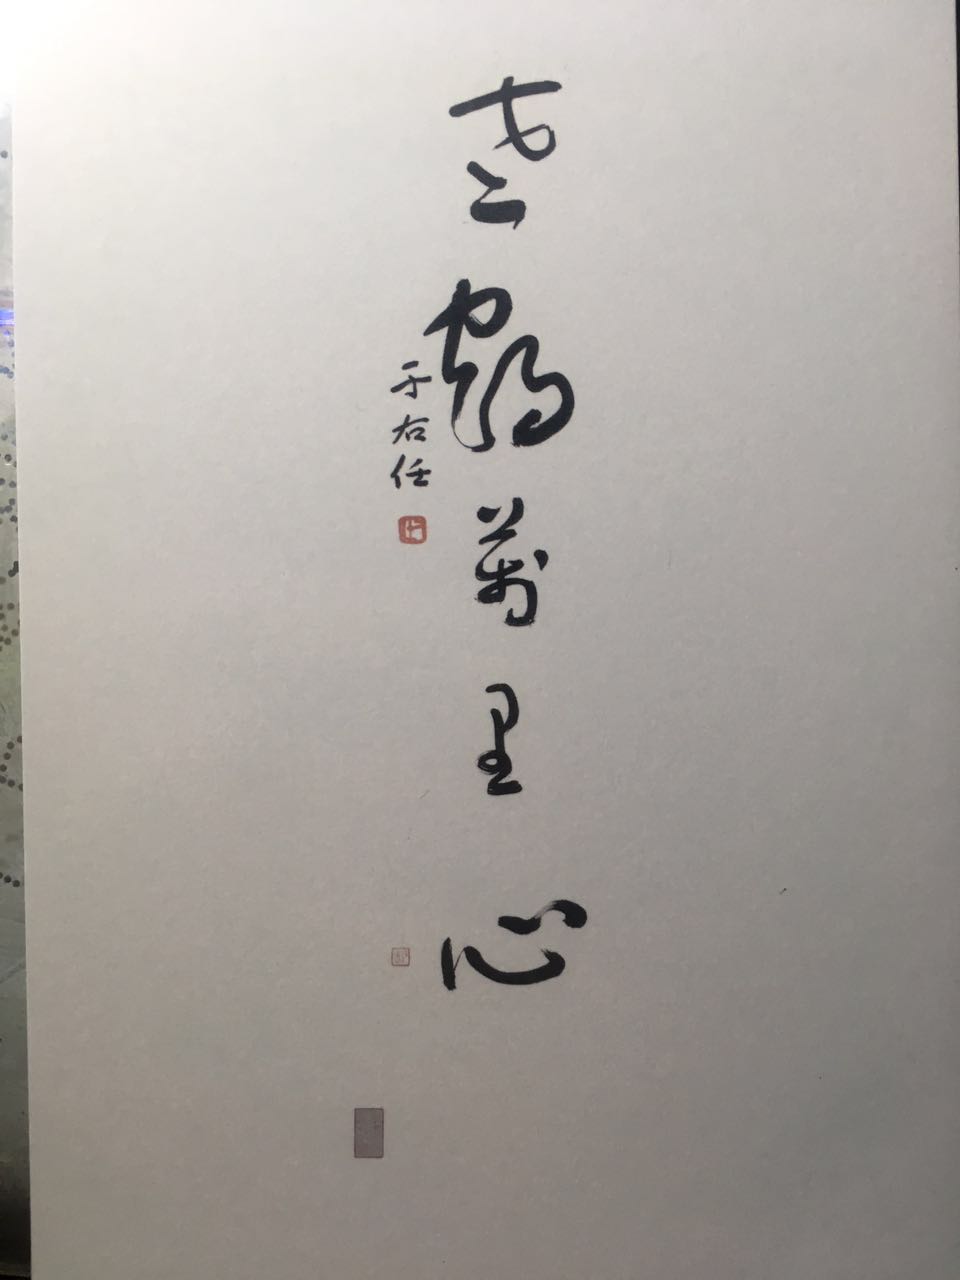 老鶴萬里心
于右任